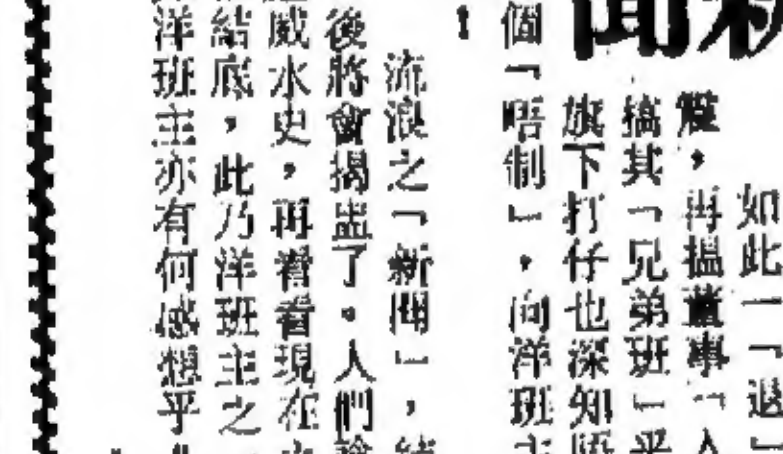 新聞
如此一「退」
再搵董事「入
搞其「兄弟班」乎
旗下打仔也深知唔
個「唔制」，向洋班主
流浪之「新聞」，結
後將會揭盅了。人們
威水史，再看看現在
結底，此乃洋班主之
洋班主亦有何感想乎